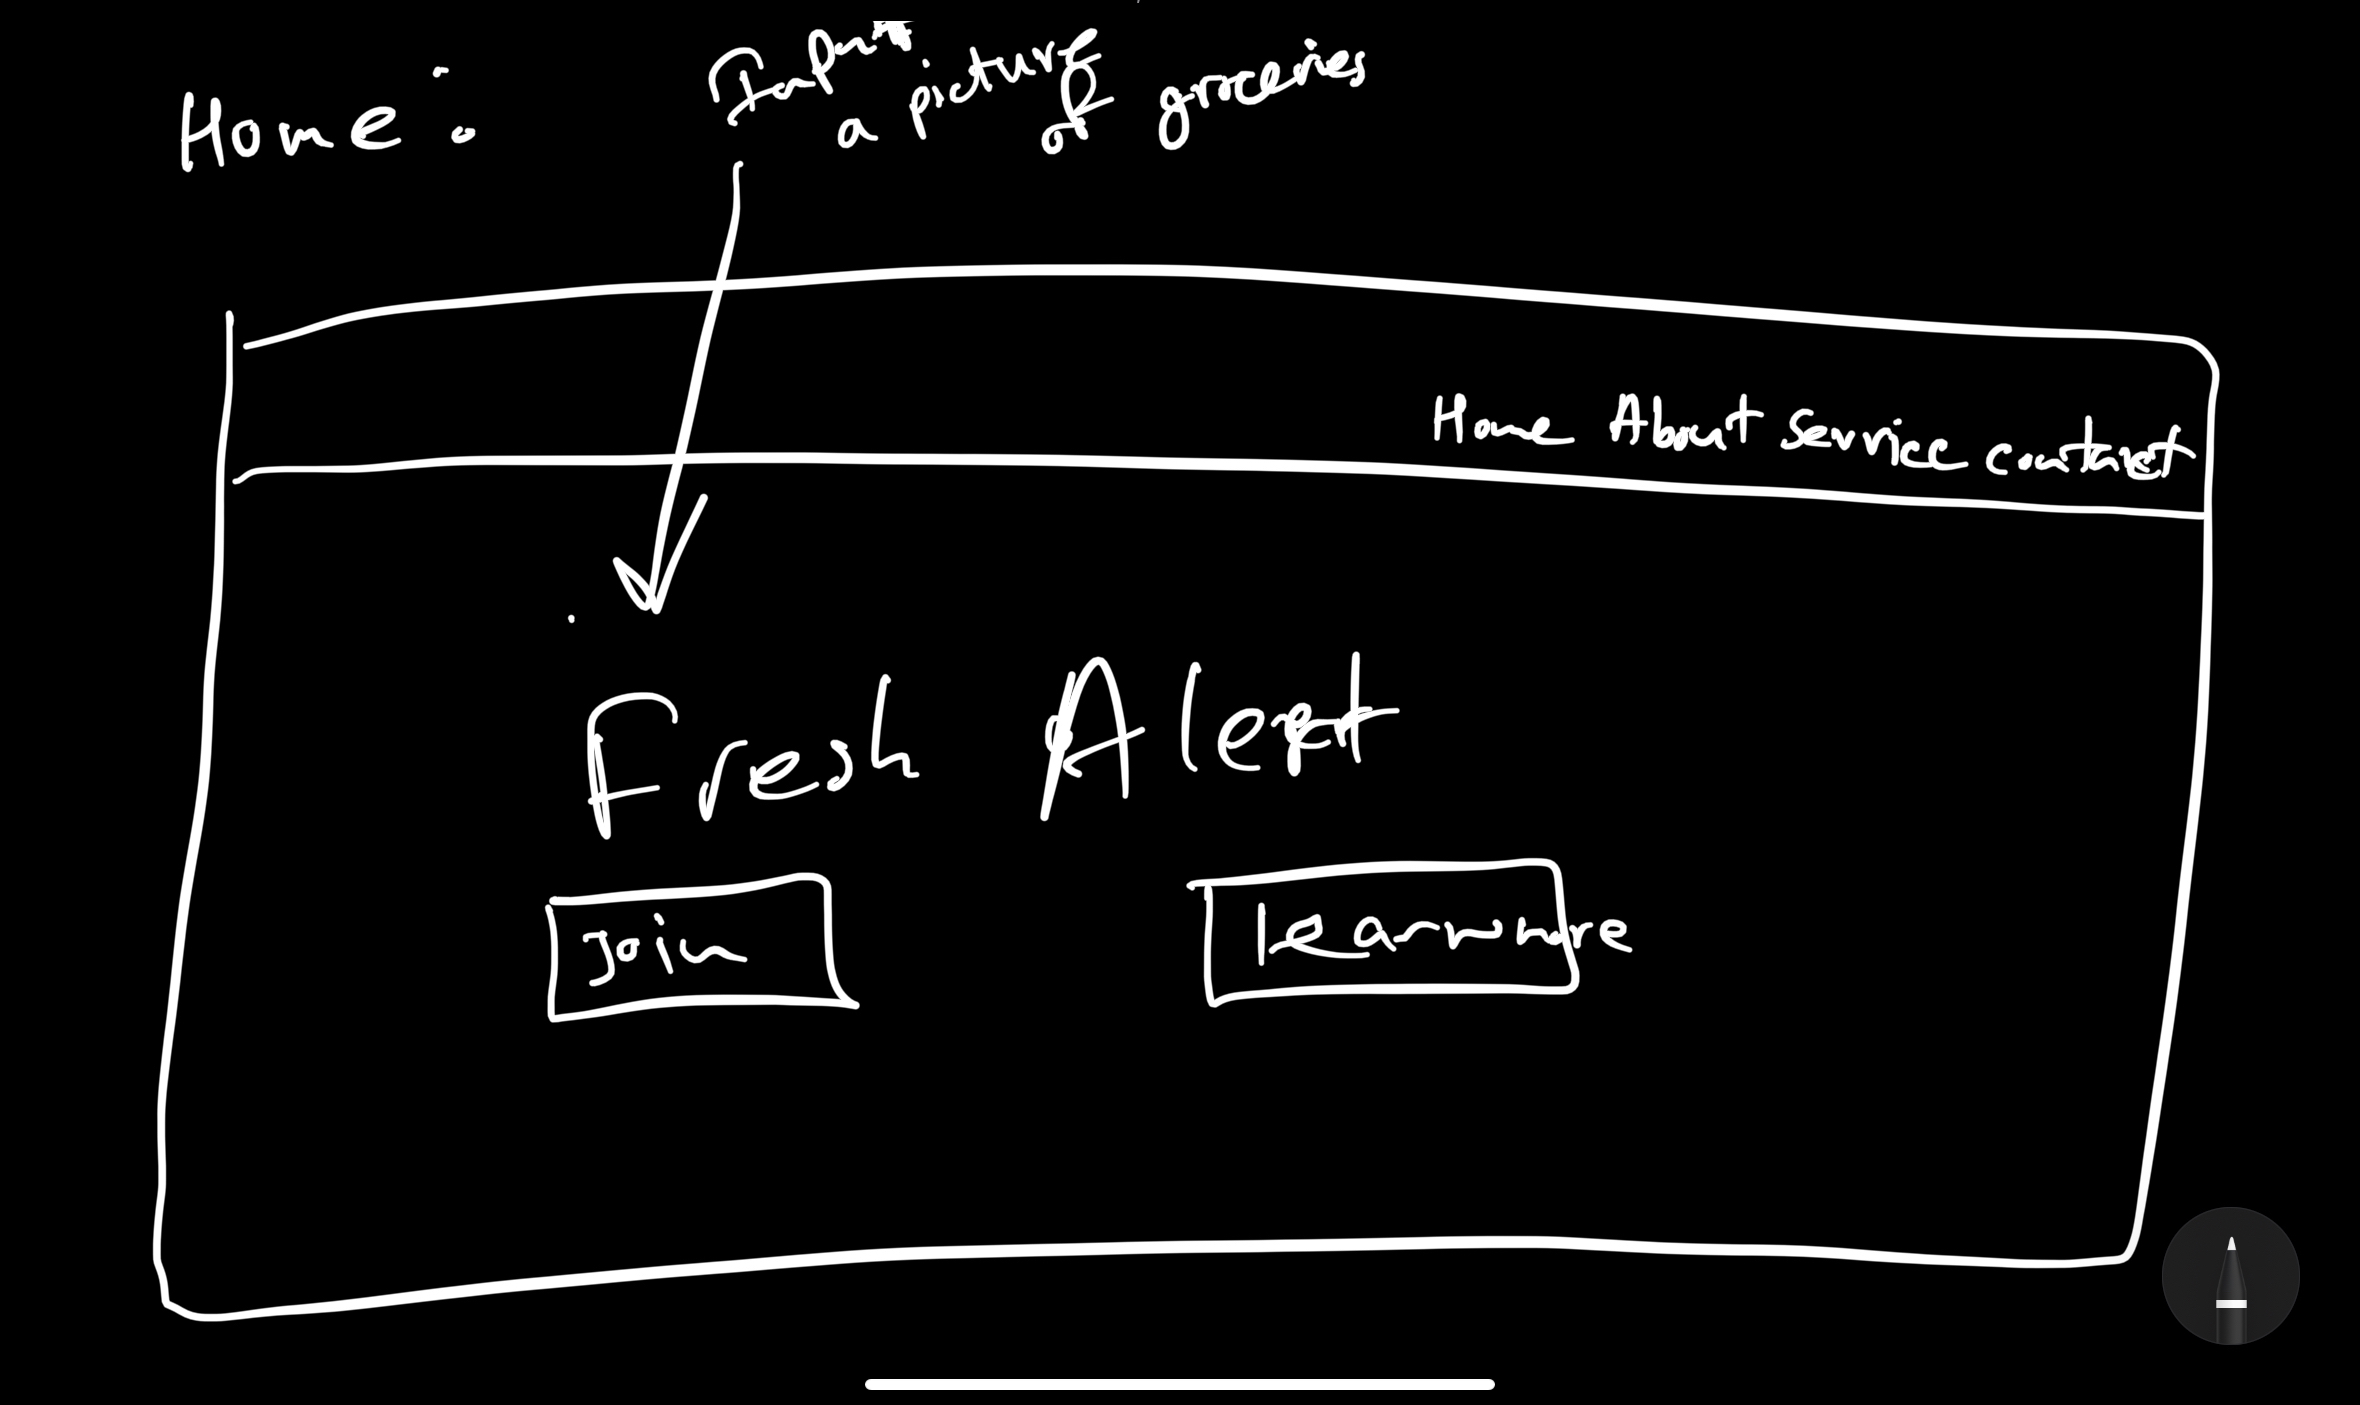 Home :
Input a picture of groceries
Home About Service contact
Fresh Alert
Join
learn more